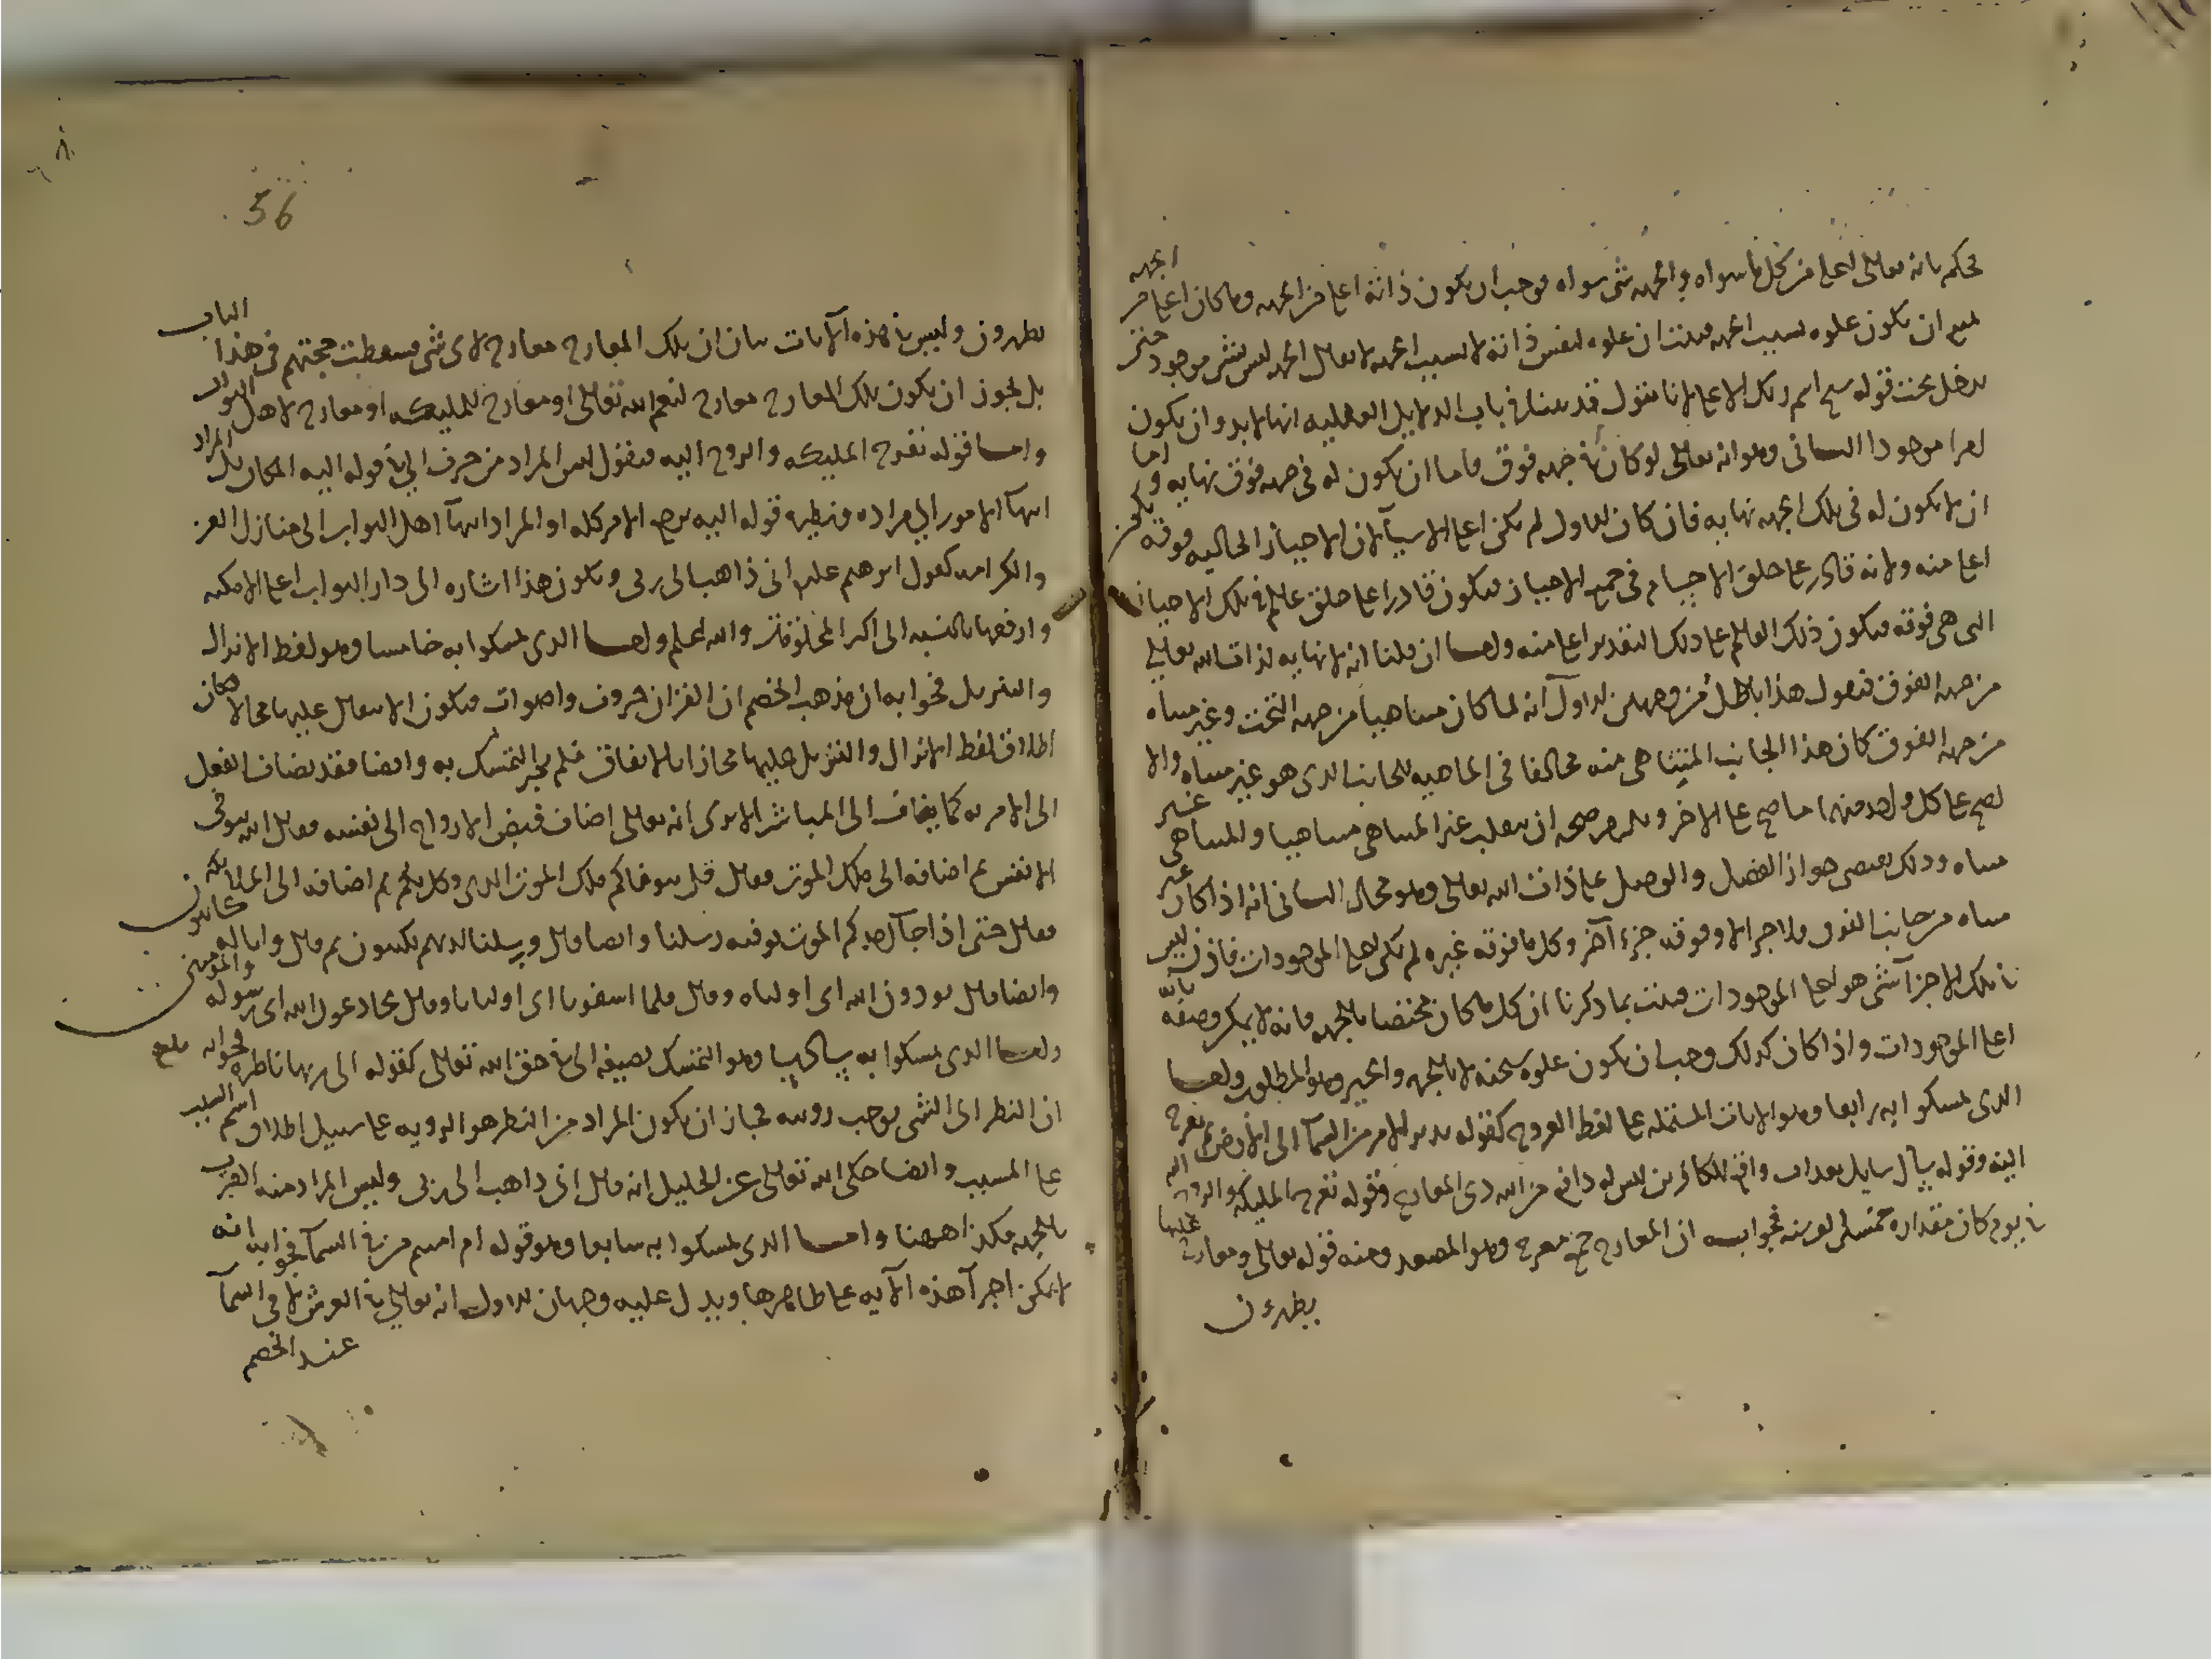 يحكم بانه تعالى اعلى من كل ما سواه والجهه شى سواه فوجب ان يكون ذاته اعلى من الجهه وما كان اعلى من الجهه
يمتنع ان يكون علوه بسبب الجهه فثبت ان علوه لنفس ذاته لا بسبب الجهه لا يقال الجهه ليس بشى موجود حتى
يدخل تحت قوله سبح اسم ربك الاعلى لانا نقول قد بينا فى باب الدلايل العقليه انها لا بد وان يكون
امرا موجودا الثانى وهو انه تعالى لو كان فى جهه فوق فاما ان يكون له فى جهه فوق نهايه واما
ان لا يكون له فى تلك الجهه نهايه فان كان الاول لم يكن اعلى الاشيآ لان الاحياز الخاليه فوقه يكون
اعلى منه ولانه قادر على خلق الاجسام فى جميع الاحياز فيكون قادرا على خلق عالم فى تلك الاحياز
التى هى فوقه فيكون ذلك العالم على ذلك التقدير اعلى منه واما ان قلنا انه لا نهايه لذات الله تعالى
من جهه الفوق فنقول هذا باطل من وجهين الاول انه لما كان متناهيا من جهه التحت وغير متناه
من جهه الفوق كان هذا الجانب المتناهى منه مخالفا فى الماهيه للجانب الذى هو غير متناه والا
لصح على كل واحد منهما ما صح على الاخر ويلزم صحه ان ينقلب غير المتناهى متناهيا والمتناهى غير
متناه وذلك يقتضى جواز الفصل والوصل على ذات الله تعالى وهو محال الثانى انه اذا كان غير
متناه من جانب الفوق فلا جز الا وفوقه جزء آخر وكل ما فوقه غيره لم يكن اعلى الموجودات فاذن ليس
فى تلك الاجزآ شى هو اعلى الموجودات فثبت بما ذكرنا ان كل ما كان مختصا بالجهه فانه لا يمكن وصفه بانه
اعلى الموجودات واذا كان كذلك وجب ان يكون علوه سبحنه لا بالجهه والحيز وهو المطلوب واما
الذى تمسكوا به رابعا وهو الايات المشتمله على لفظ العروج كقوله يدبر الامر من السمآ الى الارض ثم يعرج
اليه وقوله سال سايل بعذاب واقع للكافرين ليس له دافع من الله ذى المعارج وقوله تعرج المليكه والروح اليه
فى يوم كان مقداره خمسين الف سنه فجوابه ان المعارج جمع معرج وهو المصعد ومنه قوله تعالى ومعارج عليها
يظهرون
56
يظهرون وليس فى هذه الآيات بيان ان تلك المعارج معارج لاى شى فسقطت حجتهم فى هذا الباب
بل يجوز ان يكون تلك المعارج معارج لنعم الله تعالى او معارج للمليكه او معارج لاهل الثواب
واما قوله تعرج المليكه والروح اليه فنقول ليس المراد من حرف الى فى قوله اليه المكان بل المراد
انتهآ الامور الى مراده ونظيره قوله اليه يرجع الامر كله او المراد انتهآ اهل الثواب الى منازل العز
والكرامه كقول ابرهيم عليه انى ذاهب الى ربى ويكون هذا اشاره الى دار الثواب اعلى الامكنه
وارفعها بالنسبه الى اكثر المخلوقات والله اعلم واما الذى تمسكوا به خامسا وهو لفظ الانزال
والتنزيل فجوابه ان مذهب الخصم ان القران حروف واصوات فيكون الانتقال عليها محالا فكان
اطلاق لفظ الانزال والتنزيل عليها مجازا بالاتفاق فلم يجز التمسك به وايضا فقد يضاف الفعل
الى الامر به كما يضاف الى المباشر الا ترى انه تعالى اضاف قبض الارواح الى نفسه فقال الله يتوفى
الانفس ثم اضافه الى ملك الموت فقال قل يتوفاكم ملك الموت الذى وكل بكم ثم اضافه الى الملايكه
فقال حتى اذا جآ احدكم الموت توفته رسلنا وايضا قال ورسلنا لديهم يكتبون ثم قال وانا له كاتبون
وايضا قال يوذون الله اى اولياه وقال فلما اسفونا اى اوليانا وقال يخادعون الله اى رسوله والمومنين
واما الذى تمسكوا به سادسا وهو التمسك بصيغه الى فى حق الله تعالى كقوله الى ربها ناظره فجوابه
ان النظر الى الشى يوجب رويته فجاز ان يكون المراد من النظر هو الرويه على سبيل اطلاق اسم السبب
على المسبب وايضا حكى الله تعالى عن الخليل انه قال انى ذاهب الى ربى وليس المراد منه القرب
بالجهه فكذا ههنا واما الذى تمسكوا به سابعا وهو قوله ام امنتم من فى السمآ فجوابه انه
لا يمكن اجرآ هذه الآيه على ظاهرها ويدل عليه وجهان الاول انه تعالى فى العرش لا فى السمآ
عند الخصم